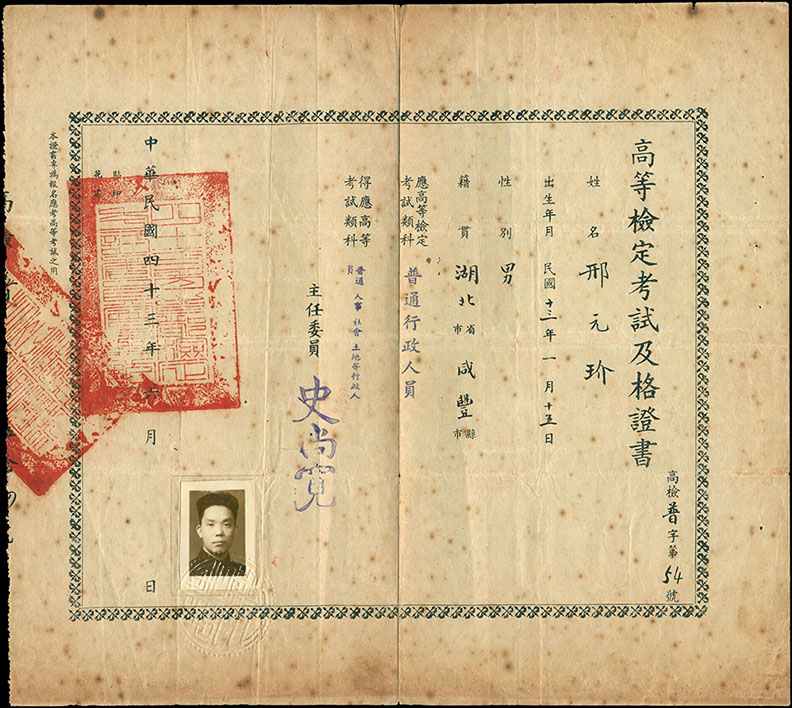 高等檢定考試及格證書
高檢普字第54號
姓名 邢元玠
出生年月 民國十三年一月十五日
性別 男
籍貫 湖北省市 咸豐縣市
應高等檢定考試類科 普通行政人員
得應高等考試類科 普通 人事 社會 土地等行政人員
主任委員 史尚寬
中華民國四十三年六月 日
貼印花票
本證書專為報名應考高等考試之用